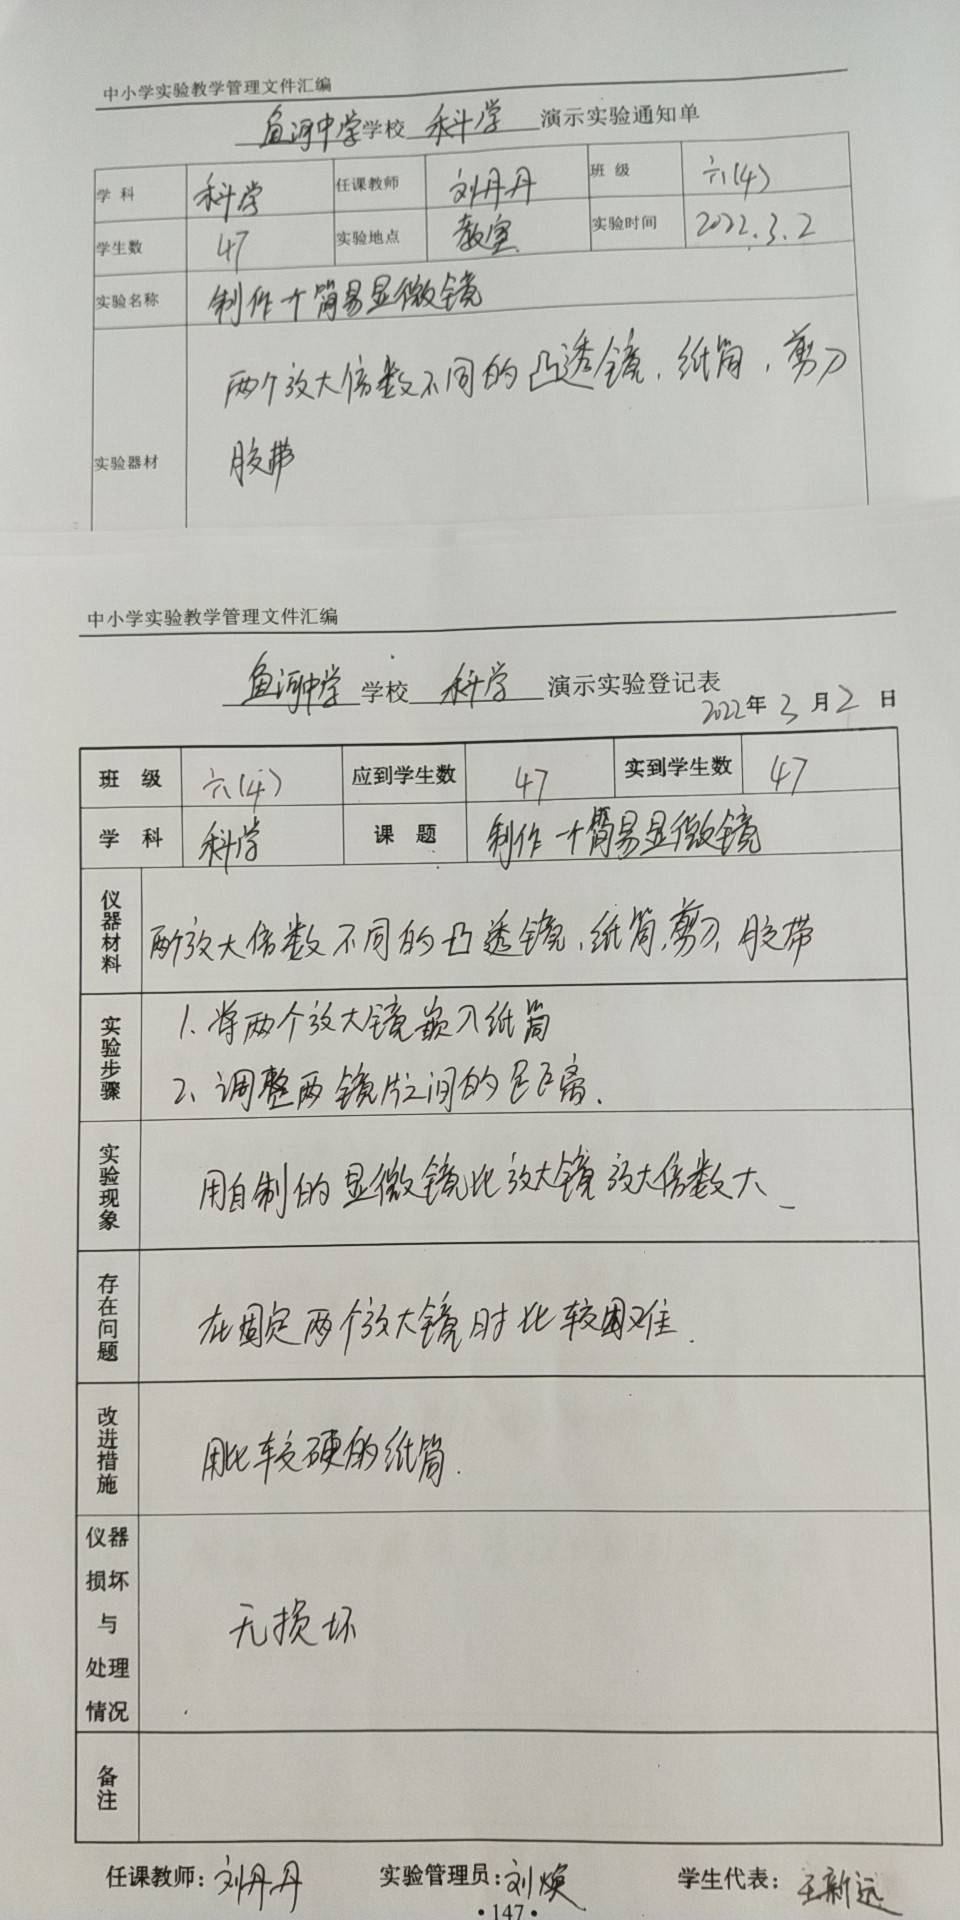 中小学实验教学管理文件汇编
鱼河中学学校 科学 演示实验通知单
学科 科学 任课教师 刘丹丹 班级 六(4)
学生数 47 实验地点 教室 实验时间 2022.3.2
实验名称 制作一个简易显微镜
两个放大倍数不同的凸透镜、纸筒，剪刀
实验器材 胶带
中小学实验教学管理文件汇编
鱼河中学 学校 科学 演示实验登记表
2022年3月2日
班级 六(4) 应到学生数 47 实到学生数 47
学科 科学 课题 制作一个简易显微镜
仪器材料 两个放大倍数不同的凸透镜、纸筒、剪刀、胶带
实验步骤 1、将两个放大镜嵌入纸筒
2、调整两镜片之间的距离.
实验现象 用自制的显微镜比放大镜放大倍数大.
存在问题 在固定两个放大镜时比较困难.
改进措施 用比较硬的纸筒.
仪器损坏与处理情况 无损坏
备注
任课教师：刘丹丹 实验管理员：刘焕 学生代表：王新远
·147·